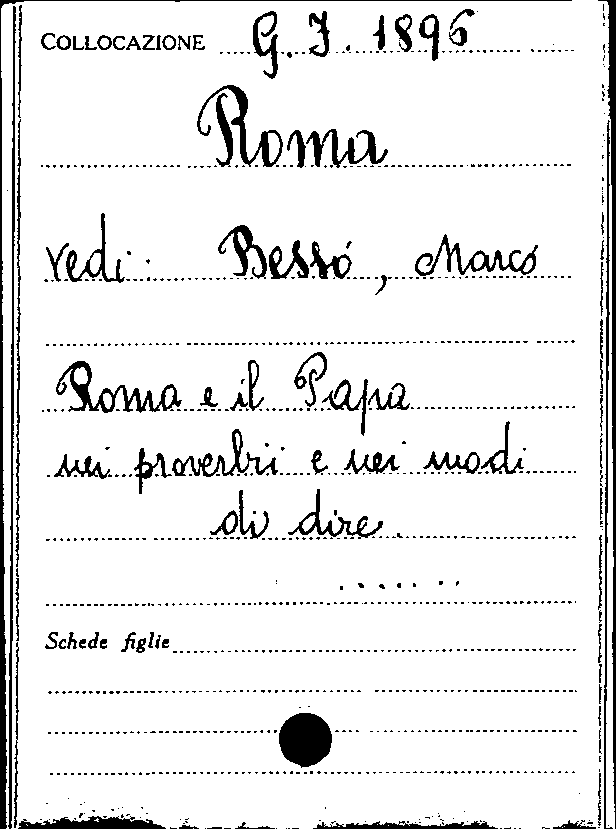 COLLOCAZIONE G. J. 1896
Roma
vedi: Besso, Marco
Roma e il Papa
nei proverbii e nei modi
di dire.
.......
Schede figlie